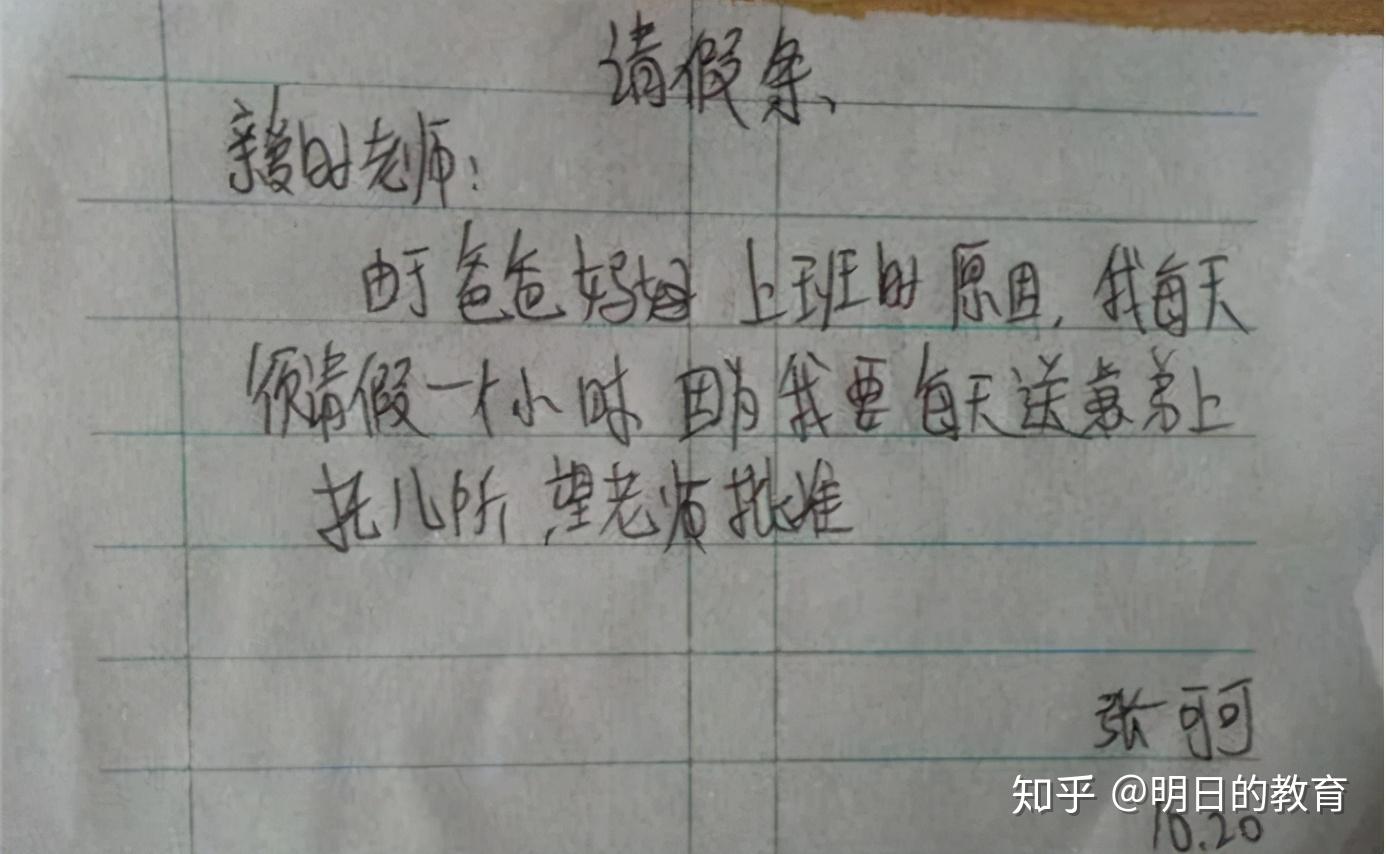 请假条
亲爱的老师:
由于爸爸妈妈上班的原因,我每天
须请假一个小时 因为我要每天送弟弟上
托儿所 望老师批准
张可可
知乎 @明日的教育
10.20